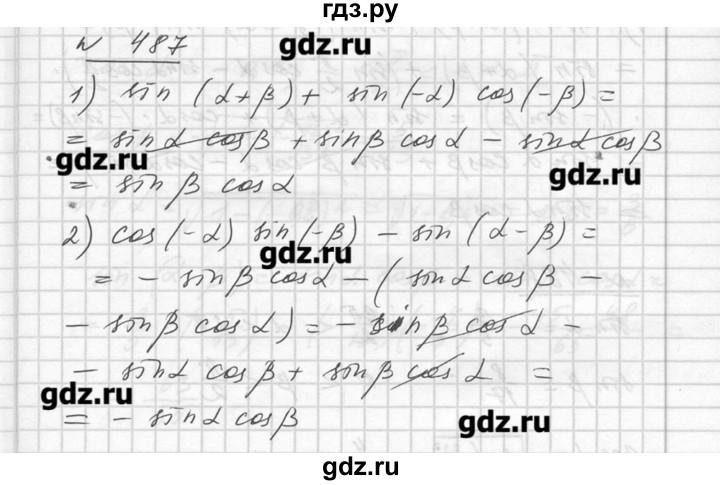 гдз.ру
N 487
gdz.ru
1) sin (α+β) + sin (-α) cos (-β) =
= sinα cosβ + sinβ cosα - sinα cosβ
gdz.ru
gdz.ru
= sinβ cosα
2) cos (-α) sin (-β) - sin (α-β) =
gdz.ru
= - sinβ cosα - (sinα cosβ -
- sinβ cosα) = - sinβ cosα -
- sinα cosβ + sinβ cosα =
gdz.ru
= - sinα cosβ
gdz.ru
gdz.ru